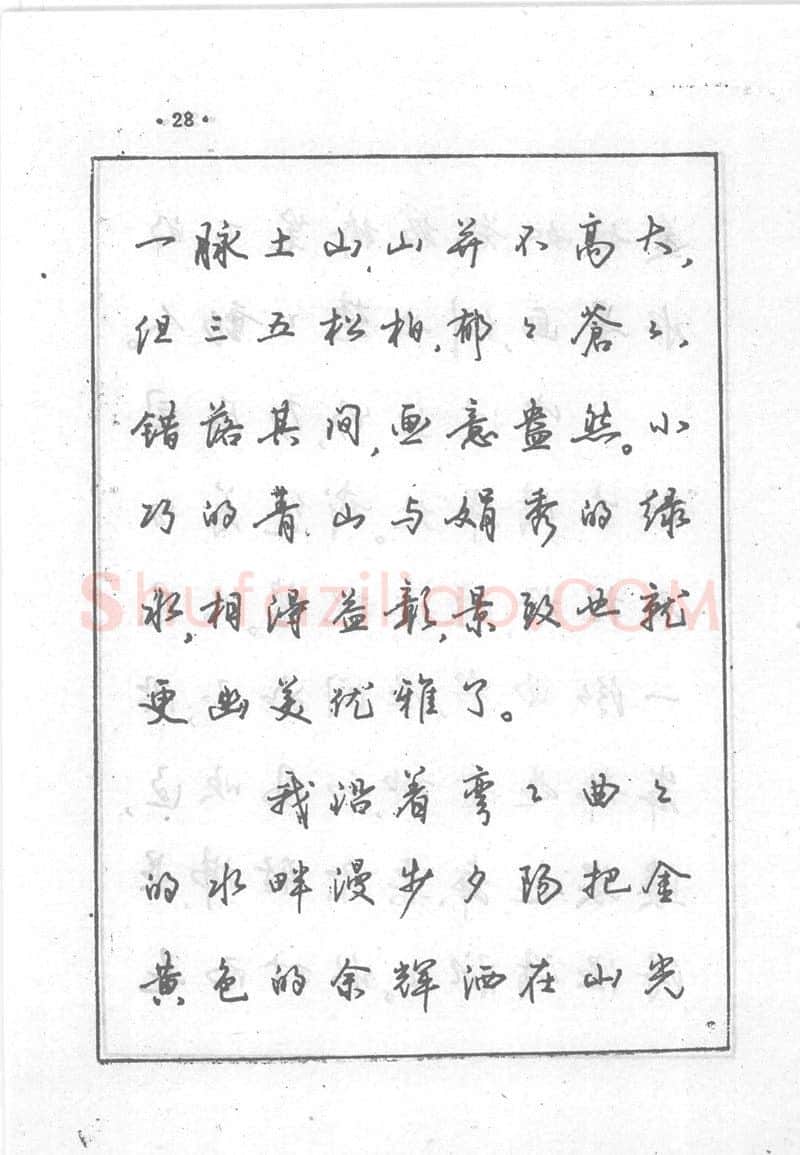 ·28·
一脉土山,山并不高大,
但三五松柏,郁々苍々,
错落其间,画意盎然。小
巧的青山与娟秀的绿
水,相得益彰,景致也就
更幽美优雅了。
我沿着弯々曲々
的水畔漫步夕阳把金
黄色的余辉洒在山光
Shufaziliao.COM